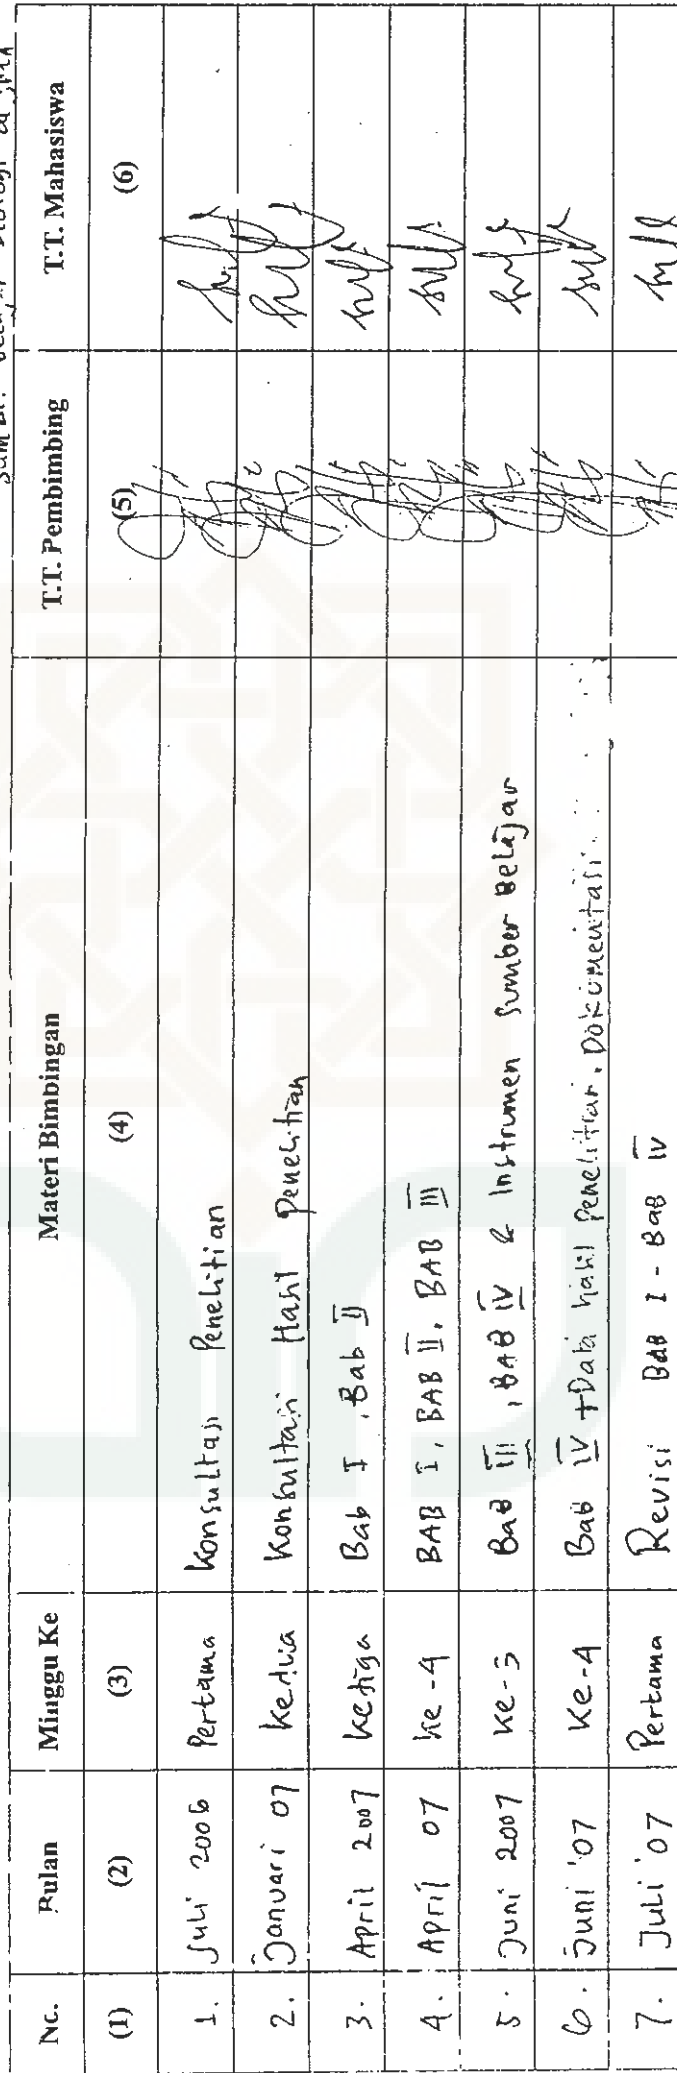 Sumber Belajar Biologi di SMA
No. Bulan Minggu Ke Materi Bimbingan T.T. Pembimbing T.T. Mahasiswa
(1) (2) (3) (4) (5) (6)
1. Juli 2006 Pertama Konsultasi Penelitian
2. Januari 07 Kedua Konsultasi Hasil Penelitian
3. April 2007 Ketiga Bab I, Bab II
4. April 07 Ke-4 BAB I, BAB II, BAB III
5. Juni 2007 Ke-3 BAB III, BAB IV & Instrumen Sumber Belajar
6. Juni '07 Ke-4 Bab IV + Data hasil Penelitian, Dokumentasi
7. Juli '07 Pertama Revisi BAB I - BAB IV